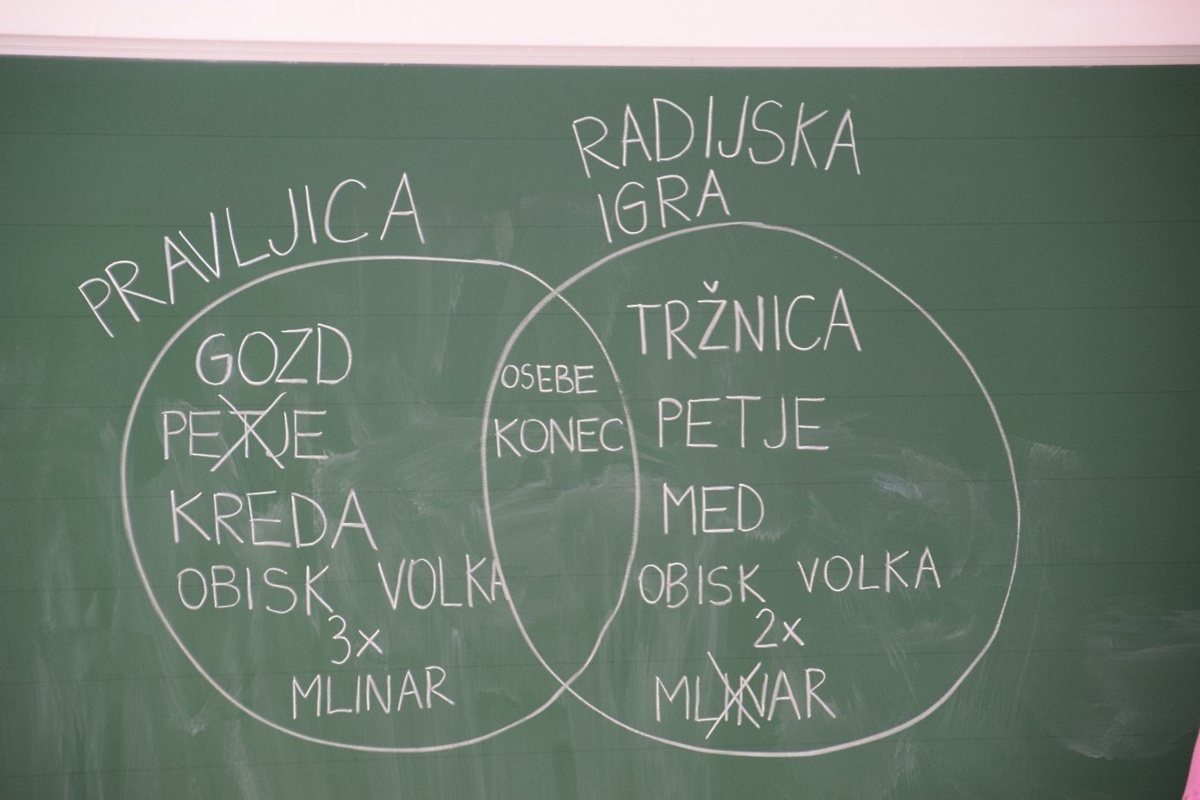 PRAVLJICA
GOZD
PETJE
KREDA
OBISK VOLKA
3x
MLINAR
OSEBE
KONEC
RADIJSKA
IGRA
TRŽNICA
PETJE
MED
OBISK VOLKA
2x
MLINAR